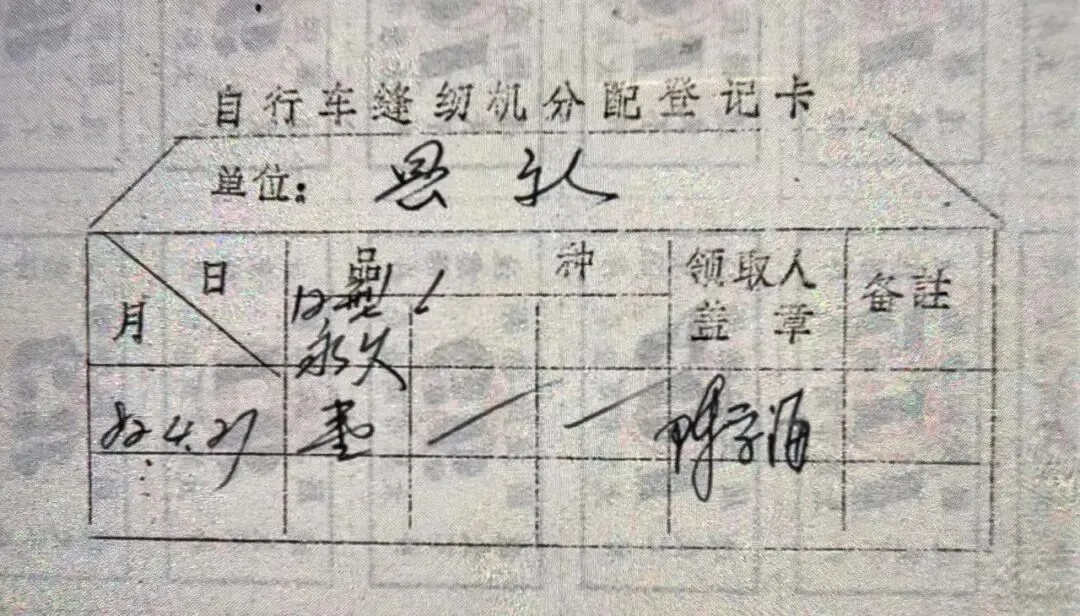 自行车缝纫机分配登记卡
单位：县
日 品 种 领取人 备註
月 12型 盖 章
永久
82.4.21 壹